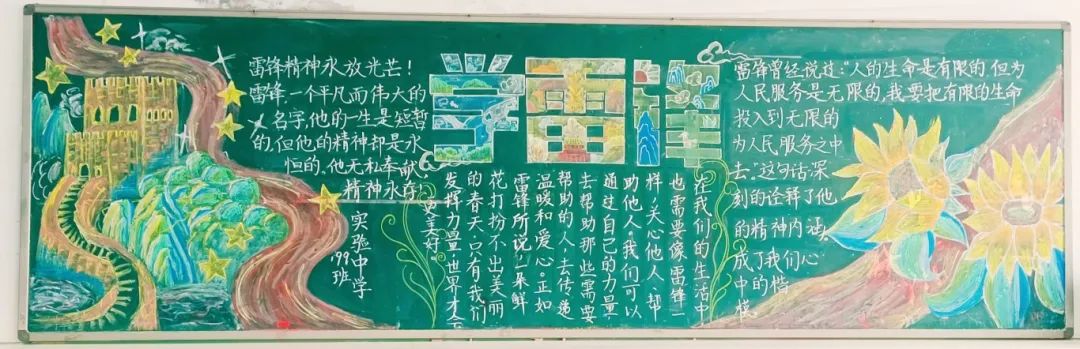 学雷锋
雷锋精神永放光芒!
雷锋,一个平凡而伟大的
名字,他的一生是短暂
的,但他的精神却是永
恒的,他无私奉献
精神永存!
实验中学
199班
在我们的生活中
也需要像雷锋一
样,关心他人、帮
助他人。我们可以
通过自己的力量
去帮助那些需要
帮助的人,去传递
温暖和爱心。正如
雷锋所说:一朵鲜
花打扮不出美丽
的春天,只有我们
发挥力量世界才会
更美好。
雷锋曾经说过:"人的生命是有限的,但为
人民服务是无限的,我要把有限的生命
投入到无限的
为人民服务之中
去。"这句话深
刻的诠释了他
的精神内涵,
成了我们心
中的楷
模。